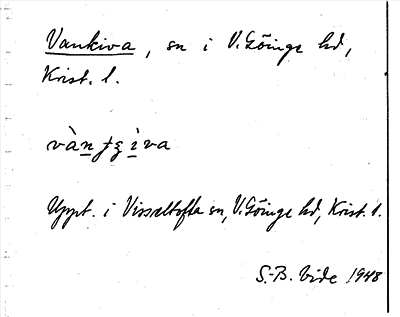 Vankiva, sn i V. Göinge hd,
Krist. l.
Uppt. i Visseltofta sn, V. Göinge hd, Krist. l.
S.-B. Vide 1948